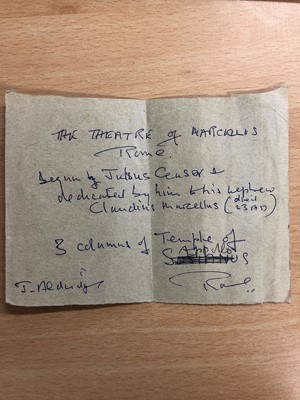 THE THEATRE of MARCELLUS
Rome.
Begun by Julius Ceaser &
dedicated by him to his nephew
Claudius Marcellus (died
23 AD)
3 columns of Temple of
Apollo
Rome